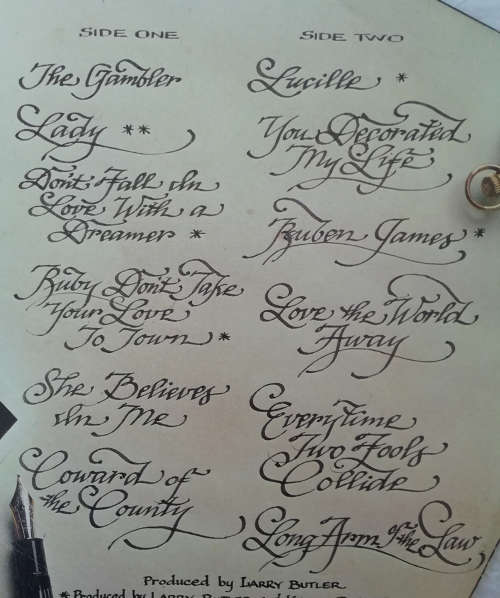 SIDE ONE
The Gambler
Lady **
Don't Fall In
Love With a
Dreamer *
Ruby Don't Take
Your Love
To Town *
She Believes
In Me
Coward of
the County
SIDE TWO
Lucille *
You Decorated
My Life
Ruben James *
Love the World
Away
Everytime
Two Fools
Collide
Long Arm of the Law
Produced by LARRY BUTLER
* Produced by LARRY BUTLER